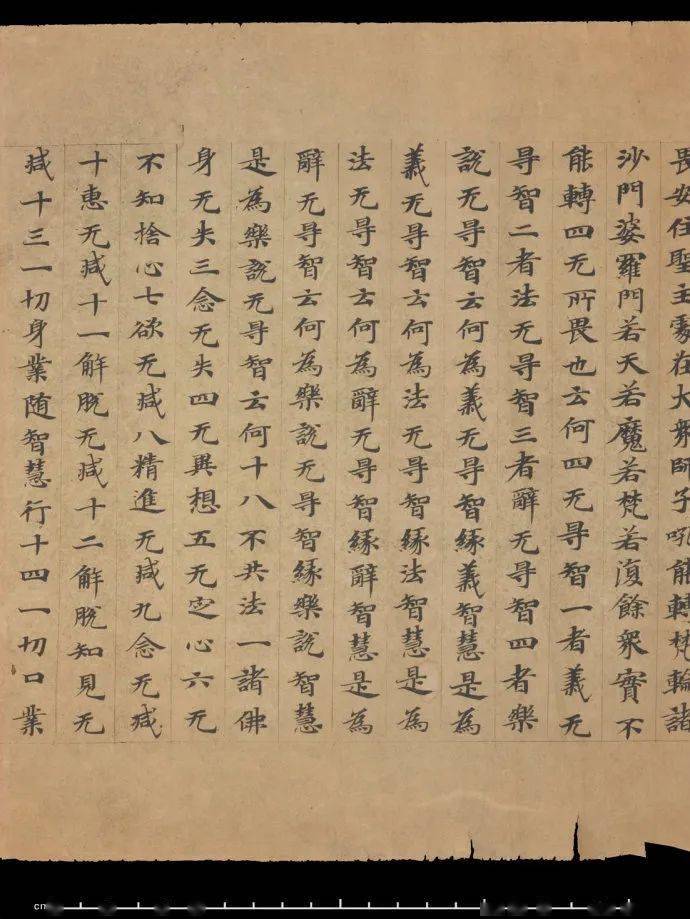 畏安住聖主處在大衆師子吼能轉梵輪諸
沙門婆羅門若天若魔若梵若復餘衆實不
能轉四无所畏也云何四无㝵智一者義无
㝵智二者法无㝵智三者辭无㝵智四者樂
說无㝵智云何為義无㝵智緣義智慧是為
義无㝵智云何為法无㝵智緣法智慧是為
法无㝵智云何為辭无㝵智緣辭智慧是為
辭无㝵智云何為樂說无㝵智緣樂說智慧
是為樂說无㝵智云何十八不共法一諸佛
身无失二念无失四无異想五无㝎心六无
不知捨心七欲无减八精進无减九念无减
十惠无减十一解脫无减十二解脫知見无
减十三一切身業随智慧行十四一切口業
cm